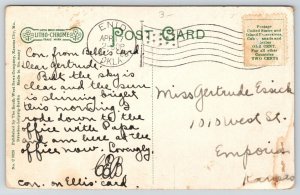 LITHO-CHROME
POST CARD
ENID
OKLA
Postage
United States and
Island Possessions
Cuba, Canada and
Mexico
ONE CENT
For all other
Countries
TWO CENTS
Con. from Belle's card
Dear Gertrude:
But the sky is
clear and the sun
is shining bright
this morning I
rode down to the
office with Papa
I am here at the
office now. Lovingly
con. on Ellis' card.
Miss Gertrude Essick
1015 West St.
Emporia
Kansas